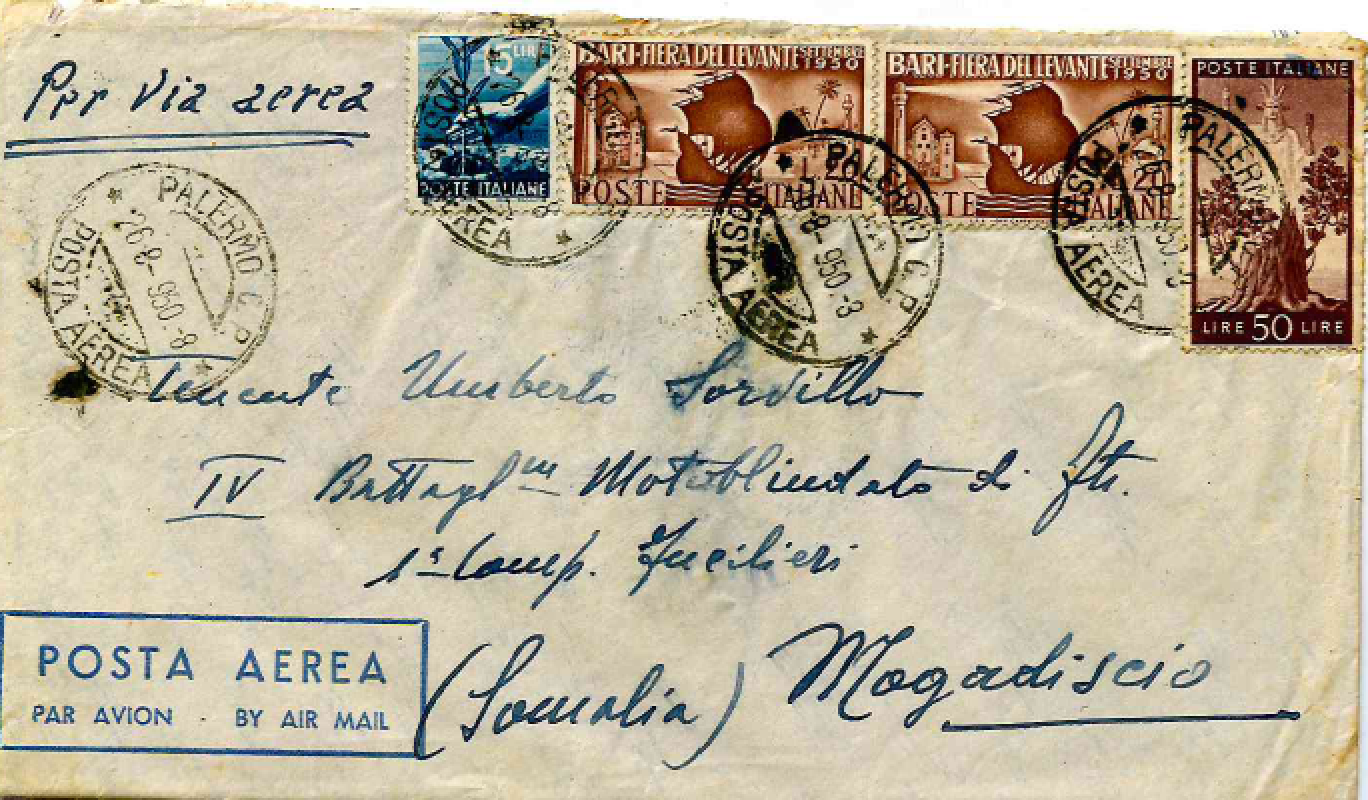 Per Via aerea
15 LIRE
POSTE ITALIANE
BARI-FIERA DEL LEVANTE SETTEMBRE 1950
L. 20
POSTE ITALIANE
BARI-FIERA DEL LEVANTE SETTEMBRE 1950
L. 20
POSTE ITALIANE
POSTE ITALIANE
LIRE 50 LIRE
PALERMO C. P.
26 8-950.-8
POSTA AEREA
PALERMO
POSTA AEREA
PALERMO C. P.
8-950.-8
POSTA AEREA
PALERMO
POSTA AEREA
Tenente Umberto Sordillo
IV Battagl^m Motoblindato di ftr.
1ª Comp. Fucilieri
(Somalia) Mogadiscio
POSTA AEREA
PAR AVION - BY AIR MAIL